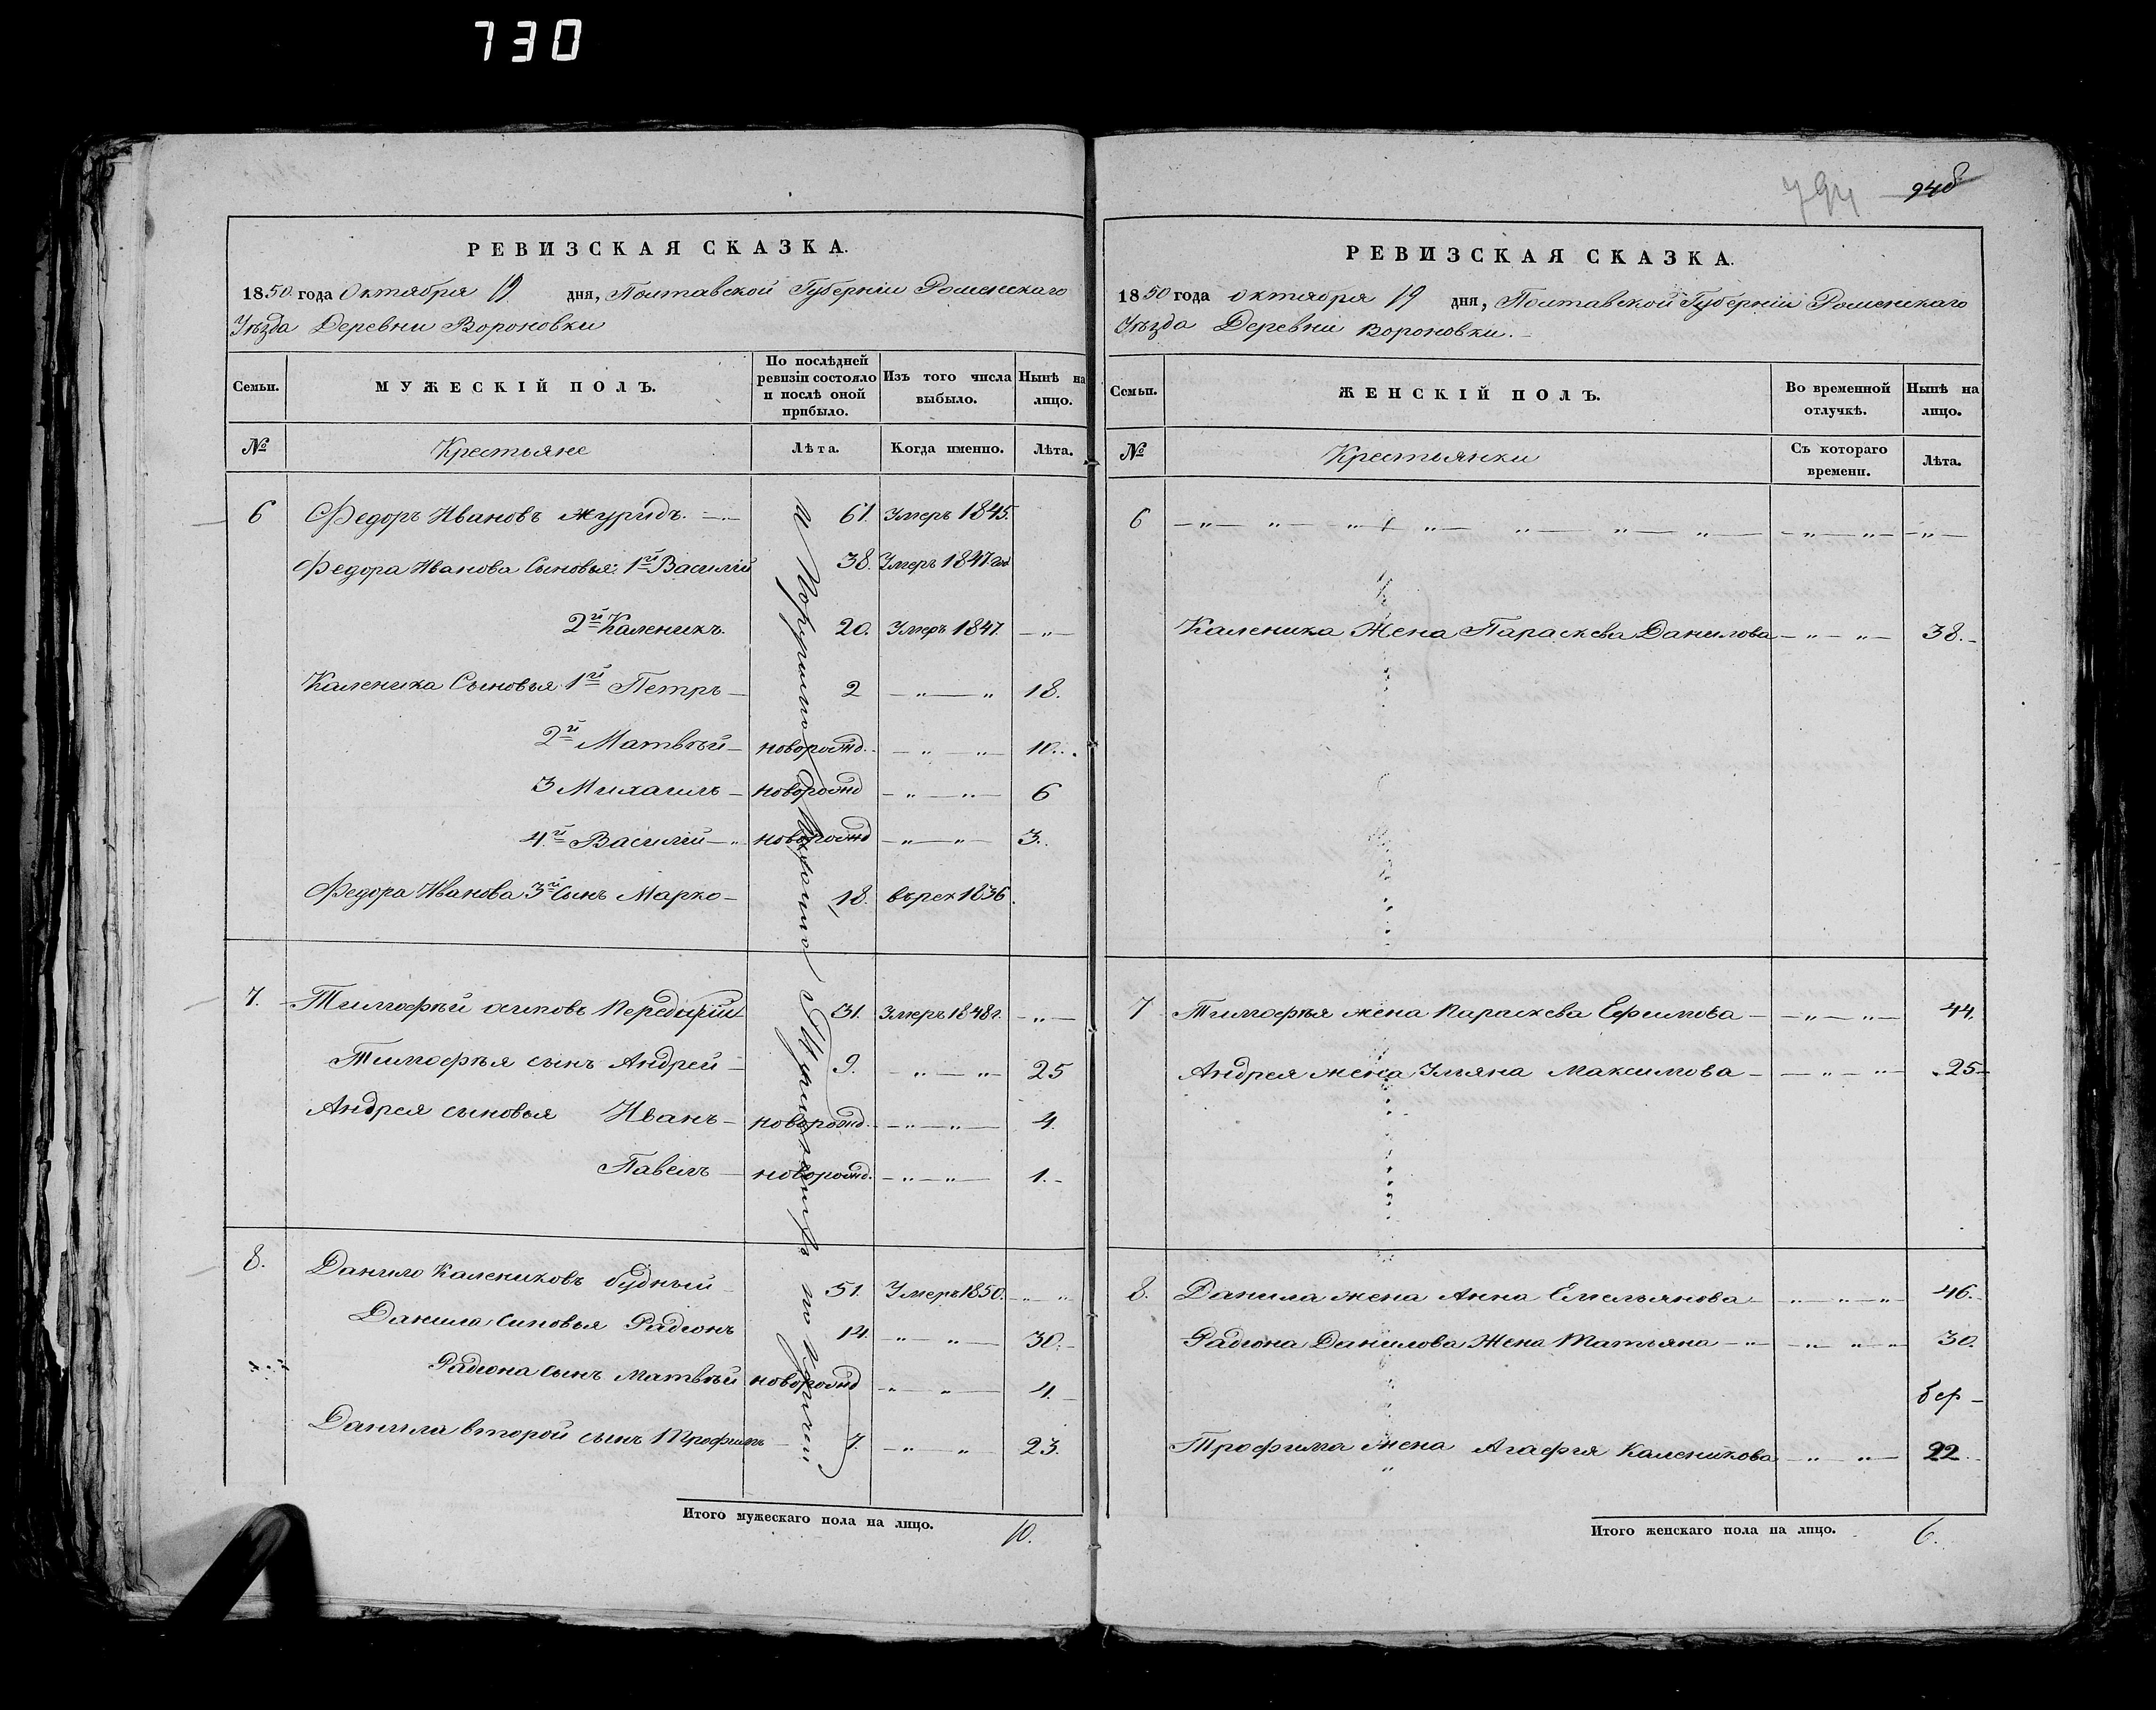 730
794 946
РЕВИЗСКАЯ СКАЗКА.
1850 года Октября 19 дня, Полтавской Губерніи Роменскаго
Уѣзда Деревни Вороновки
Семьи.
МУЖЕСКІЙ ПОЛЪ.
По послѣдней ревизіи состояло и послѣ оной прибыло.
Изъ того числа выбыло.
Нынѣ на лицо.
№ Крестьяне Лѣта. Когда именно. Лѣта.
6 Федоръ Ивановъ журидъ. 61. Умеръ 1845.
Федора Иванова Сыновья: 1й Василій 38. Умеръ 1847 год
2й Каленикъ. 20. Умеръ 1847. -„-
Каленика Сыновья 1й Петръ 2 -„-„ 18.
2й Матвѣй новорожд. -„-„- 10.
3 Михаилъ новорожд -„-„- 6
4й Василій новорожд -„-„- 3.
Федора Иванова 3й Сынъ Марко 18. въ рек 1836.
7. Тимофѣй осиповъ 31. Умеръ 1848г. -„-
Тимофѣя сынъ Андрей 9. -„-„- 25
Андрея сыновья Иванъ новорожд. -„-„- 4.
Павелъ новорожд. -„-„- 1.
8. Данило Калениковъ будный 51. Умеръ 1850. -„-„
Данила Синовья Радіонъ 14. -„-„- 30.
Радіона сынъ Матвѣй новорожд -„-„- 4.
Данила второй сынъ Трофимъ 7. -„-„ 23.
Итого мужескаго пола на лицо. 10.
РЕВИЗСКАЯ СКАЗКА.
1850 года октября 19 дня, Полтавской Губерніи Роменскаго
Уѣзда Деревни Вороновки.
Семьи.
ЖЕНСКІЙ ПОЛЪ.
Во временной отлучкѣ.
Нынѣ на лицо.
№ Крестьянки Съ котораго времени. Лѣта.
6 -„-„-„-„-„-„-„-
Каленика Жена Параскева Данилова -„-„- 38.
7 Тимофѣя жена Параскева Ефимова -„-„- 44.
Андрея жена Ульяна Максимова -„-„- 25
8. Данила жена Анна Емельянова -„-„-„ 46.
Радіона Данилова Жена Татьяна -„-„-„ 30.
Трофима жена Агафія Каленикова -„-„- 22
Итого женскаго пола на лицо. 6.